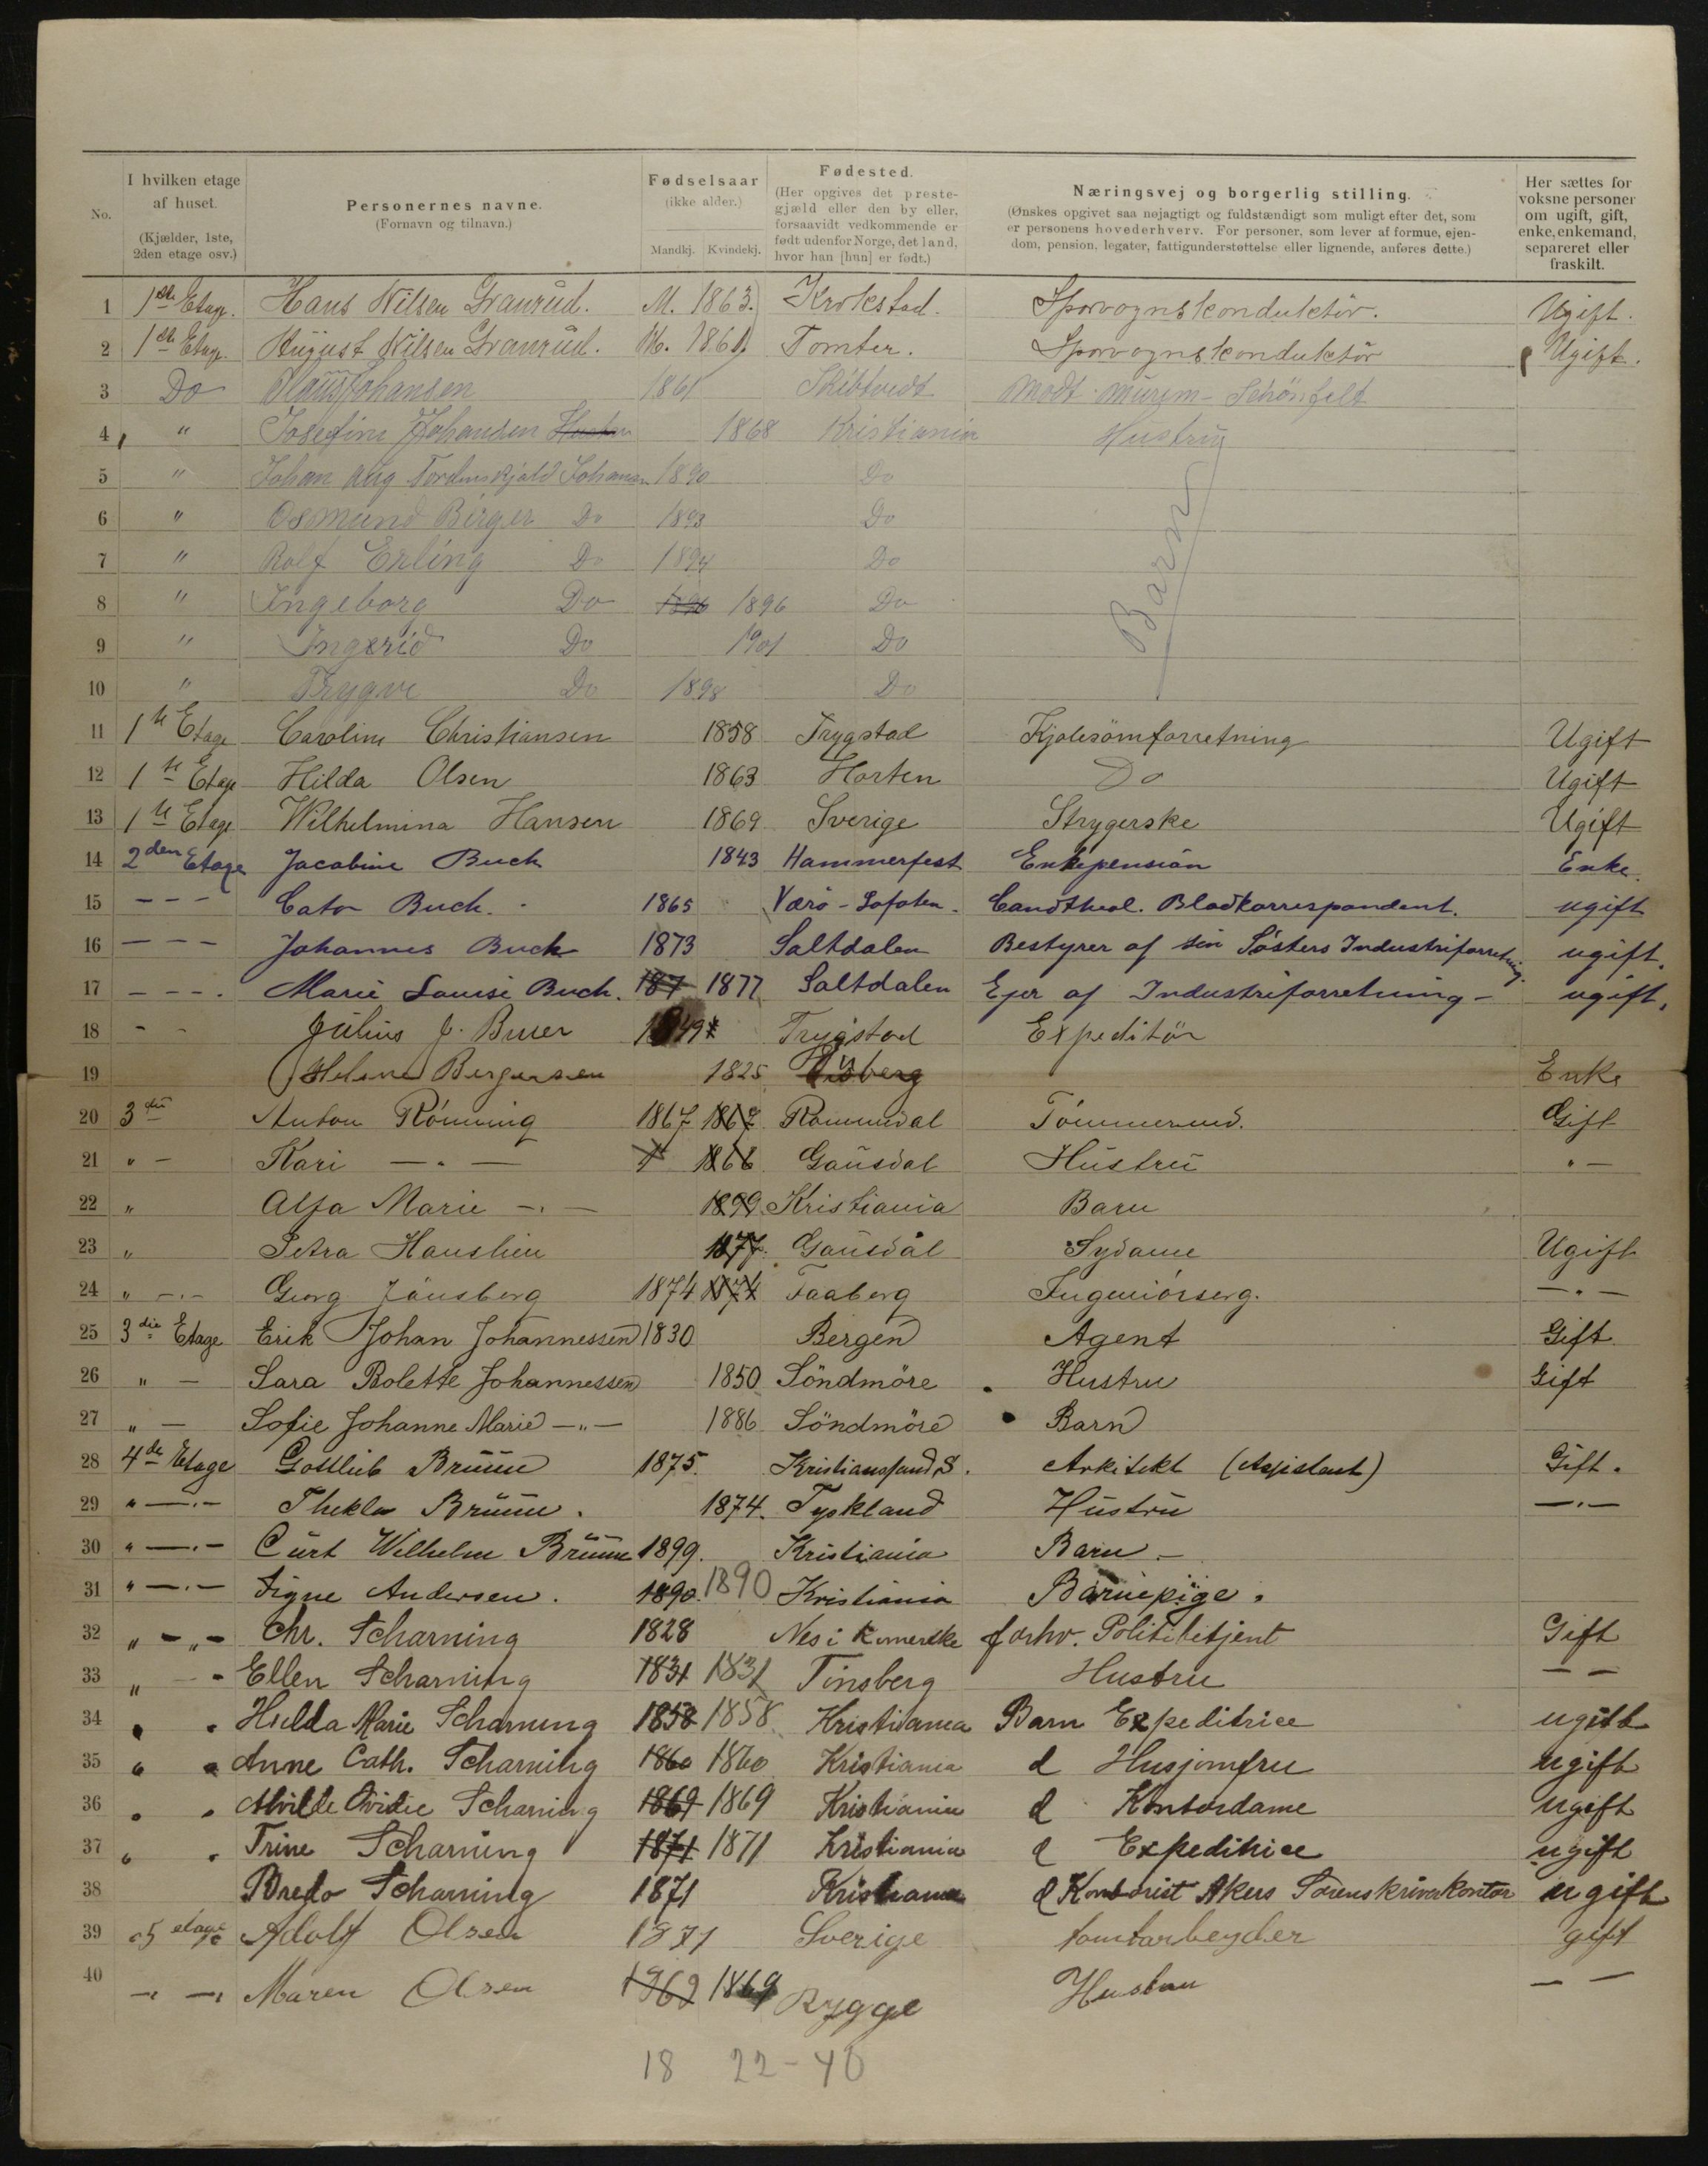 No.
I hvilken etage af huset. (Kjælder, 1ste, 2den etage osv.)
Personernes navne. (Fornavn og tilnavn.)
Fødselsaar (ikke alder.) Mandkj. Kvindekj.
Fødested. (Her opgives det prestegjæld eller den by eller, forsaavidt vedkommende er født udenfor Norge, det land, hvor han [hun] er født.)
Næringsvej og borgerlig stilling. (Ønskes opgivet saa nøjagtigt og fuldstændigt som muligt efter det, som er personens hovederhverv. For personer, som lever af formue, ejendom, pension, legater, fattigunderstøttelse eller lignende, anføres dette.)
Her sættes for voksne personer om ugift, gift, enke, enkemand, separeret eller fraskilt.
1 1ste Etage. Hans Nilsen Granrud. M. 1863. Krokstad. Sporvognskonduktör. Ugift.
2 1ste Etage. August Nilsen Granrud. M. 1861. Tomter. Sporvognskonduktör Ugift.
3 Do Johansen 1861 Skibtvedt Schönfelt
4 " Josefine Johansen Hustru 1868 Kristiania Hustru
5 " Johan Aug Tordenskjold Johansen 1890 Do
6 " Osmund Birger Do 1893 Do
7 " Rolf Erling Do 1894 Do
8 " Ingeborg Do 1896 1896 Do Barn
9 " Ingerid Do 1901 Do
10 " Trygve Do 1898 Do
11 1ste Etage Caroline Christiansen 1858 Trygstad Kjolesömforretning Ugift
12 1ste Etage Hilda Olsen 1863 Horten Do Ugift
13 1ste Etage Wilhelmina Hansen 1869 Sverige Strygerske Ugift
14 2den Etage Jacobine Buch 1843 Hammerfest Enkepension Enke.
15 - - - Cato Buch. 1865 Værö - Lofoten. Candtheol. Bladkorrespondent. ugift
16 - - - Johannes Buch 1873 Saltdalen Bestyrer af sin Søsters Industriforretning. ugift.
17 - - - . Marie Louise Buch. 187 1877 Saltdalen Ejer af Industriforretning - ugift.
18 - - Julius J. Buer 1849 Trygstad Expeditör
19 Helene Bergersen 1825 Enke
20 3die Anton Rönning 1867 1867 Romsdal Tömmermd. Gift
21 " - Kari - " - 1 1866 Gausdal Hustru " -
22 " Alfa Marie - " - 1899 Kristiania Barn
23 " Petra Hauslien 1877 Gausdal Sydame Ugift
24 " - " - Georg Jönsberg 1874 1874 Faaberg - " -
25 3die Etage Erik Johan Johannessen 1830 Bergen Agent Gift
26 " - Sara Bolette Johannessen 1850 Söndmöre Hustru Gift
27 " - Sofie Johanne Marie - " - 1886 Söndmöre Barn
28 4de Etage Gottlieb Brunn 1875. Kristianssand S. Arkitekt (Assistent) Gift.
29 " - " - Thekla Brunn. 1874. Tyskland Hustru - " -
30 " - " - Curt Wilhelm Brunn 1899. Kristiania Barn -
31 " - " - Signe Andersen. 1890. 1890 Kristiania Barnepige.
32 " - " - Chr. Scharning 1828 Nes i Romerike forhv. Politibetjent Gift
33 " - - Ellen Scharning 1831 1831 Tönsberg Hustru - -
34 " " Hulda Marie Scharning 1858 1858 Kristiania Barn Expeditrice ugift
35 " " Anne Cath. Scharning 1860 1860 Kristiania d Husjomfru ugift
36 " " Alvilde Ovidie Scharning 1869 1869 Kristiania d Kontordame ugift
37 " " Trine Scharning 1871 1871 Kristiania d Expeditrice ugift
38 Bredo Scharning 1871 Kristiania d Kontorist Akers Sorenskriverkontor ugift
39 5 etage Adolf Olsen 1871 Sverige tomtarbeyder gift
40 - " - " Maren Olsen 1869 1869 Rygge Hustru - -
18 22 - 40